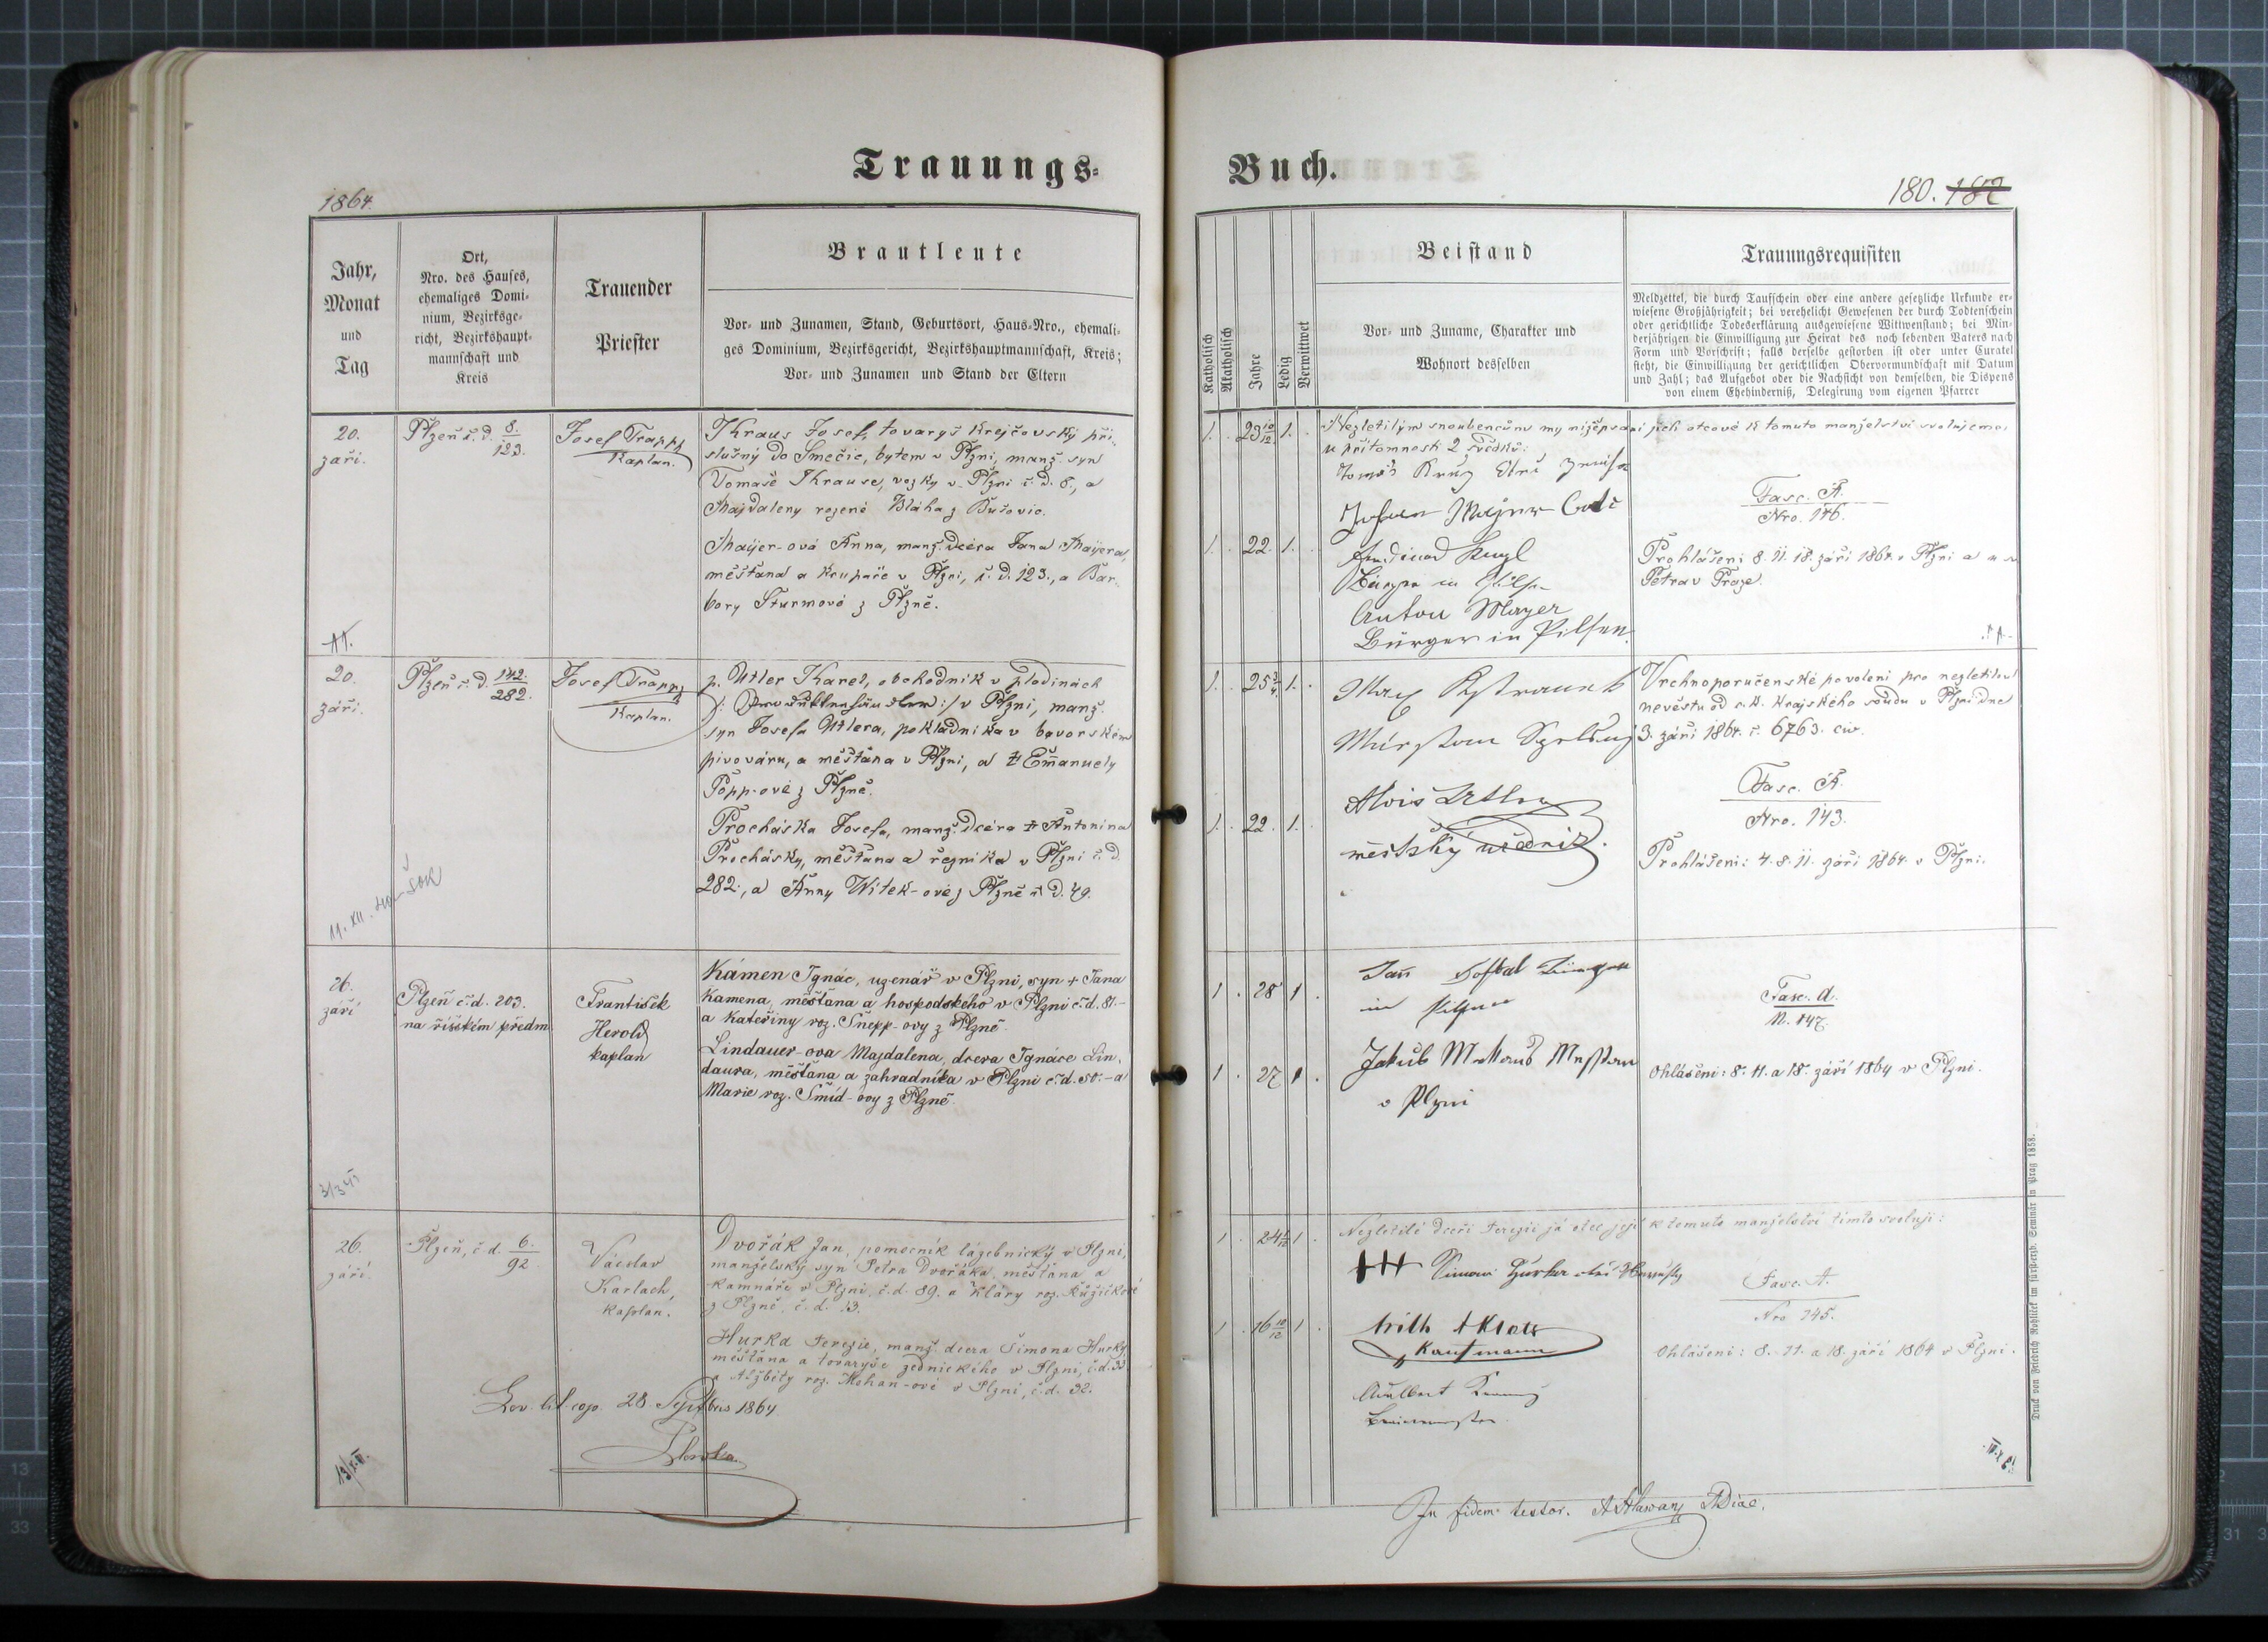 Trauungs-
Buch.
1864.
180. 182
Jahr,
Monat
und
Tag
Ort,
Nro. des Hauses,
ehemaliges Domi-
nium, Bezirksge-
richt, Bezirkshaupt-
mannschaft und
Kreis
Trauender
Priester
Brautleute
Vor- und Zunamen, Stand, Geburtsort, Haus-Nro., ehemali-
ges Dominium, Bezirksgericht, Bezirkshauptmannschaft, Kreis;
Vor- und Zunamen und Stand der Eltern
Katholisch
Akatholisch
Jahre
Ledig
Verwittwet
Beistand
Vor- und Zuname, Charakter und
Wohnort desselben
Trauungsrequisiten
Meldzettel, die durch Taufschein oder eine andere gesetzliche Urkunde er-
wiesene Großjährigkeit; bei verehelicht Gewesenen der durch Todtenschein
oder gerichtliche Todeserklärung ausgewiesene Wittwenstand; bei Min-
derjährigen die Einwilligung zur Heirat des noch lebenden Vaters nach
Form und Vorschrift; falls derselbe gestorben ist oder unter Curatel
steht, die Einwilligung der gerichtlichen Obervormundschaft mit Datum
und Zahl; das Aufgebot oder die Nachsicht von demselben, die Dispens
von einem Ehehinderniß, Delegirung vom eigenen Pfarrer
20.
září.
Plzeň č. d. 8.
123.
Josef Trappl
Kaplan.
Kraus Josef, tovaryš krejčovský pří-
slušný do Smečic, bytem v Plzni, manž. syn
Tomaše Krause, vozky v Plzni č. d. 8., a
Majdaleny rozené Bláha z Bušovic.
Mayer-ová Anna, manž. dcera Jana Mayera,
měšťana a krupaře v Plzni, č. d. 123., a Bar-
bory Šturmové z Plzně.
1. 23 10/12 1.
1. 22. 1.
Nezletilým snoubencům my nížepsaní jich otcové k tomuto manželství svolujeme
u přítomnosti 2 svědků:
Johann Mayer
Bürger in Pilsen
Anton Mayer
Bürger in Pilsen.
Fasc. A.
Nro. 146.
Prohlášení 8. 11. 18. září 1864 v Plzni a u sv
Petra v Praze.
20.
září.
Plzeň č. d. 142.
282.
Josef Trappl
Kaplan.
p. Utler Karel, obchodník v plodinách
/: Produktenhändler :/ v Plzni, manž.
syn Josefa Utlera, pokladníka v bavorském
pivováru, a měšťana v Plzni, a † Emanuely
Popp-ové z Plzně.
Procháska Josefa, manž. dcéra † Antonína
Prochásky, měšťana a řezníka v Plzni č. d.
282., a Anny Witek-ové z Plzně č. d. 49.
1. 25 3/4 1.
1. 22. 1.
Alois Utler
městský uředník.
Vrchnoporučenské povolení pro nezletilou
nevěstu od c. k. Krajského soudu v Plzni dne
3. září 1864. č. 6763. civ.
Fasc. A.
Nro. 143.
Prohlášení: 4. 8. 11. září 1864. v Plzni.
26.
září
Plzeň č. d. 203.
na říšském předm.
František
Herold
kaplan
Kámen Ignác, uzenář v Plzni, syn † Jana
Kamena, měšťana a hospodského v Plzni č. d. 81.-
a Kateřiny roz. Šnepp-ovy z Plzně.
Lindauer-ova Majdalena, dcera Ignáce Lin-
daura, měšťana a zahradníka v Plzni č. d. 50.- a
Marie roz. Šmíd-ovy z Plzně.
1. 28 1.
1 27 1.
Jakub
v Plzni
Fasc. A.
N. 147.
Ohlášení: 8. 11. a 18. září 1864 v Plzni.
26.
září.
Plzeň, č. d. 6.
92
Václav
Karlach,
kaplan.
Dvořák Jan, pomocník lázebnický v Plzni,
manželský syn Petra Dvořáka, měšťana a
kamnáře v Plzni, č. d. 89. a Kláry roz. Růžičkové
z Plzně, č. d. 13.
Hurka Terezie, manž. dcera Šimona Hurky,
měšťana a tovaryše zednického v Plzni, č. d. 33
a Alžběty roz. Mohan-ové v Plzni, č. d. 32.
1 1
1. 16 10/12 1
Nezletilé dceři Terezii já otec její k tomuto manželství tímto svoluji:
+++
Kaufmann
Fasc. A.
Nro 145.
Ohlášení: 8. 11. a 18. září 1864 v Plzni.
28 Septbris 1864
In fidem testor.
Druck von Friedrich Rohliček im fürsterzb. Seminär in Prag 1858.